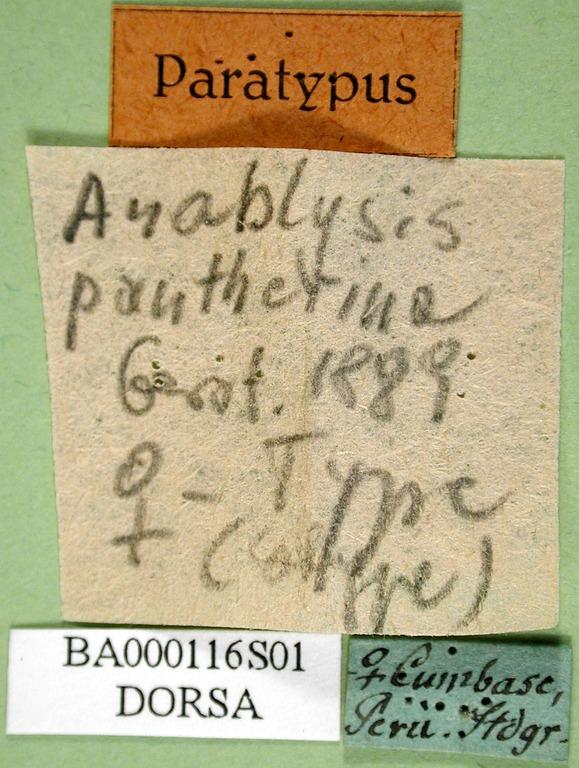 Paratypus
Anablysis
pantherina
Gerst. 1889
♀ - Type
(Cotype)
BA000116S01
DORSA
♀ Cumbase,
Perú. Stdgr.